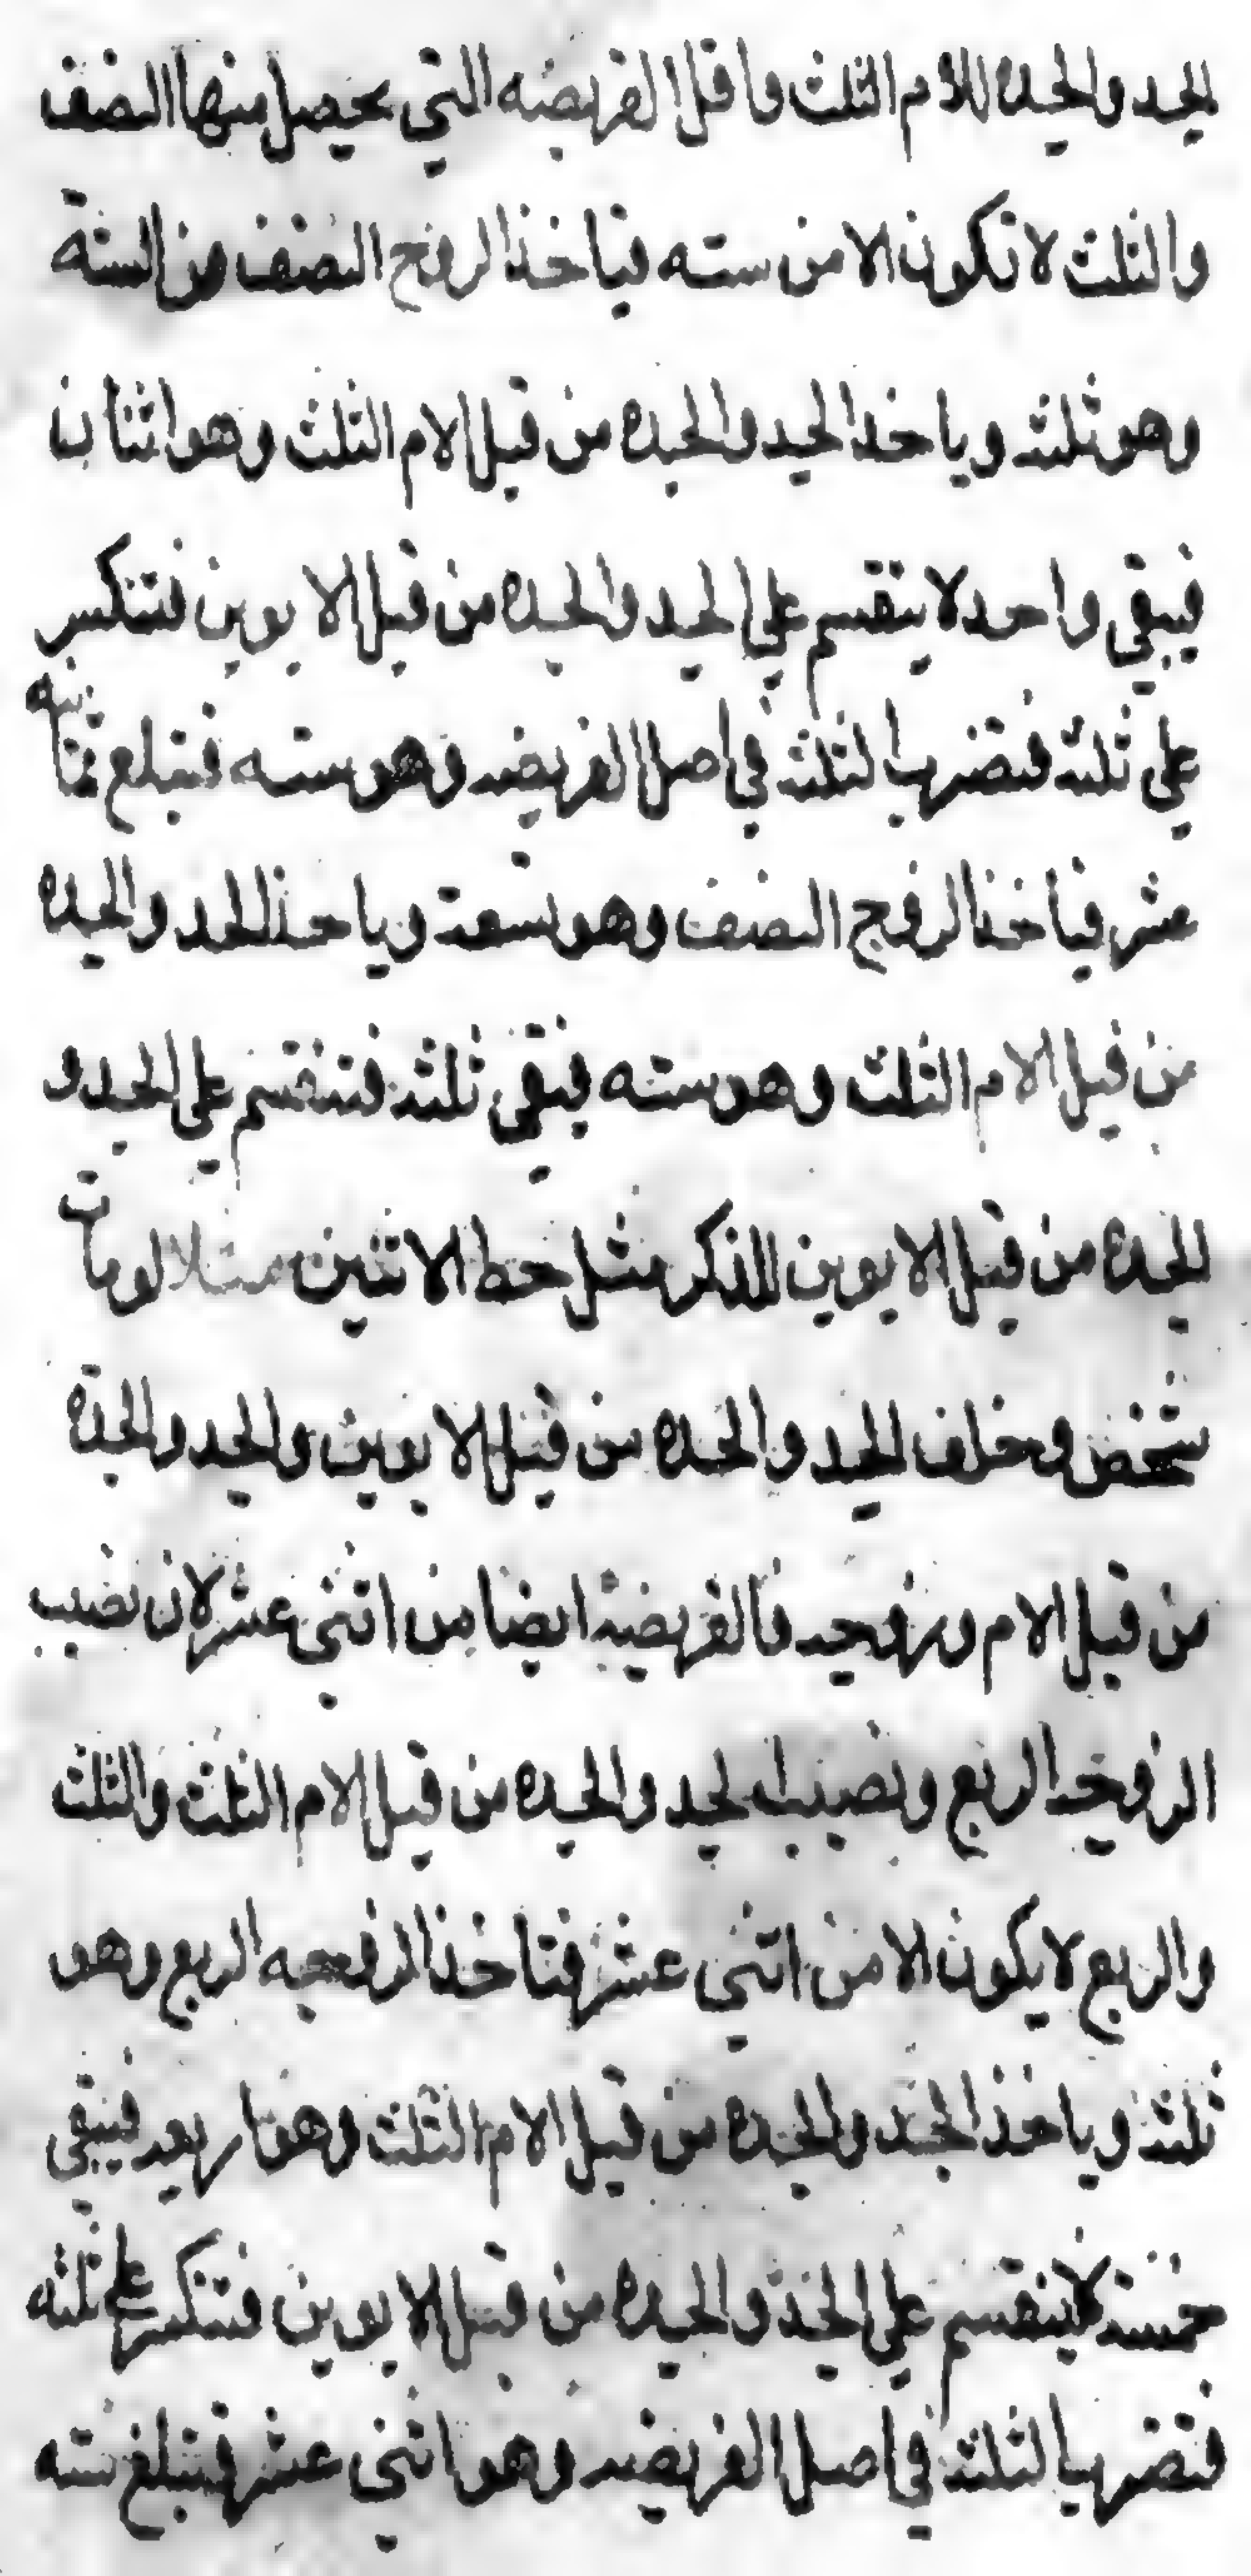 للجد والجده للام الثلث واقل الفريضه التي يحصل منها النصف
والثلث لا تكون الا من سته فياخذ الزوج النصف من الستة
وهو ثلثة وياخذ الجد والجده من قبل الام الثلث وهو اثنان
فيبقى واحد لا ينقسم على الجد والجده من قبل الابوين فتنكسر
على ثلثة فتضرب الثلثة في اصل الفريضة وهو سته فتبلغ ثمانيه
عشر فياخذ الزوج النصف وهو تسعة وياخذ الجد والجده
من قبل الام الثلث وهو سته فيبقى ثلثة فتنقسم على الجد و
الجدة من قبل الابوين للذكر مثل حظ الانثيين مثلا لو مات
شخص وخلف الجد والجده من قبل الابوين والجد والجدة
من قبل الام وزوجة فالفريضة ايضا من اثنى عشر لان نصيب
الزوجة الربع ونصيب الجد والجده من قبل الام الثلث والثلث
والربع لا يكون الا من اثنى عشر فتاخذ الزوجه الربع وهو
ثلثة وياخذ الجد والجده من قبل الام الثلث وهو اربعة فيبقى
خمسة لا ينقسم على الجد والجده من قبل الابوين فتنكسر على ثلثه
فتضرب الثلثة في اصل الفريضة وهو اثنى عشر فتبلغ سته